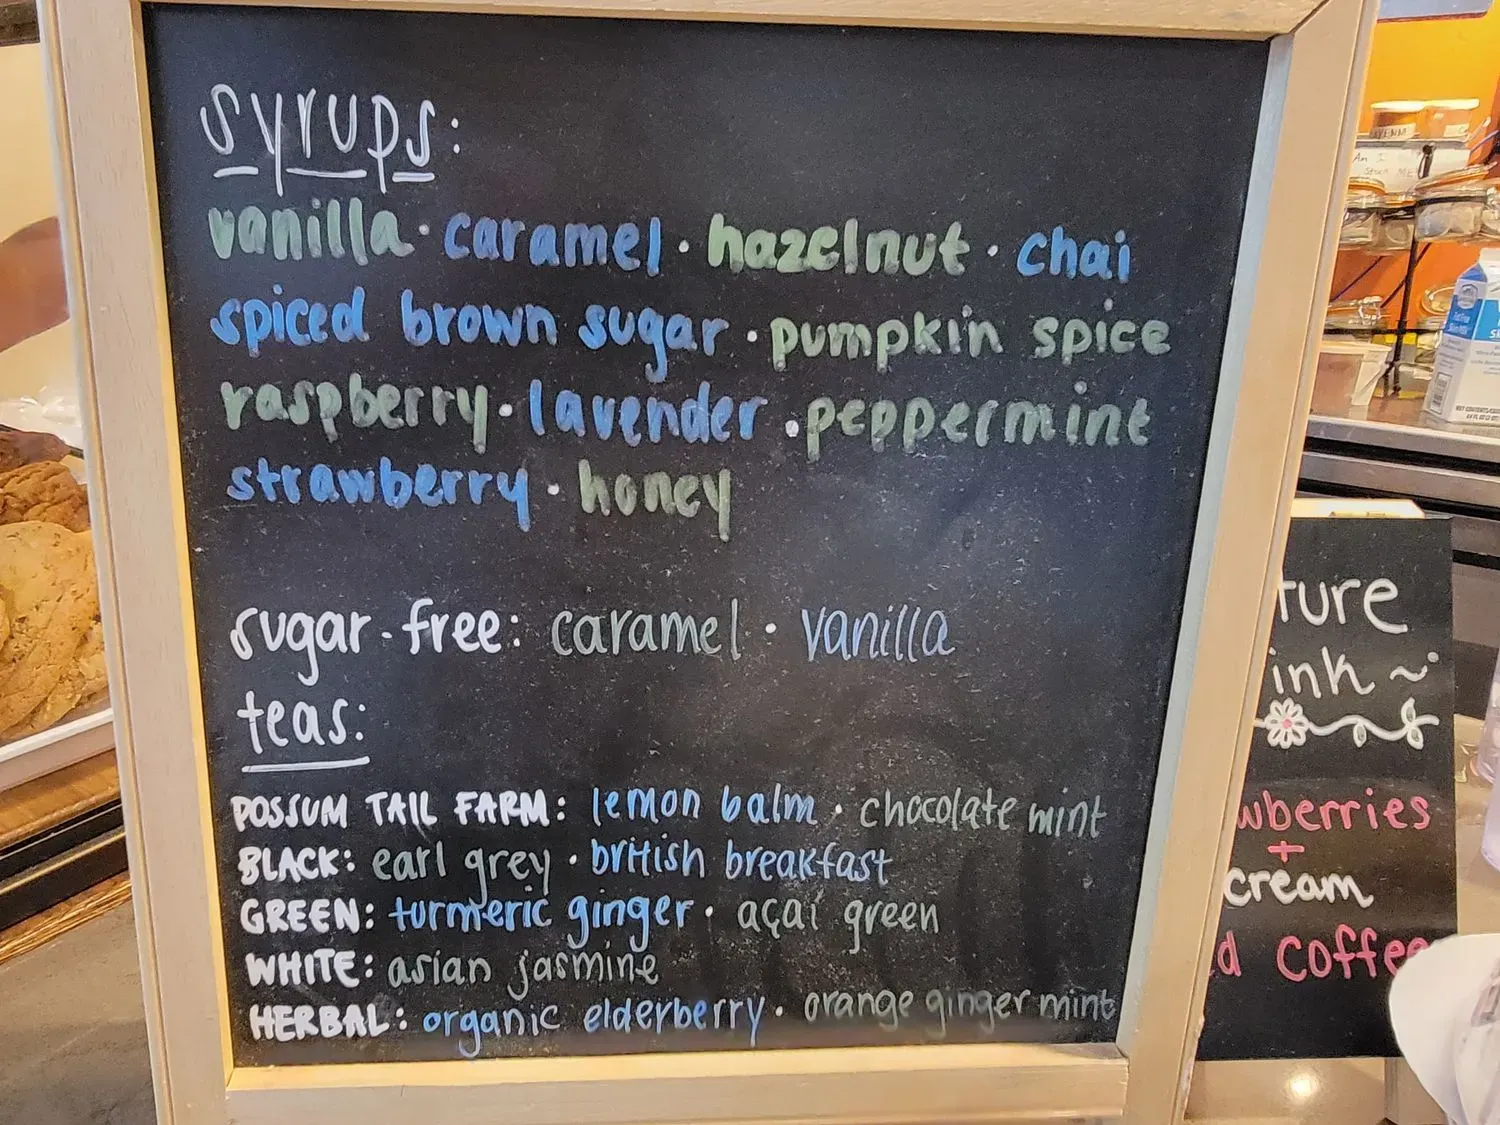 syrups:
vanilla · caramel · hazelnut · chai
spiced brown sugar · pumpkin spice
raspberry · lavender · peppermint
strawberry · honey
sugar-free: caramel · vanilla
teas:
POSSUM TAIL FARM: lemon balm · chocolate mint
BLACK: earl grey · british breakfast
GREEN: turmeric ginger · açaí green
WHITE: asian jasmine
HERBAL: organic elderberry · orange ginger mint
ture
ink ~
wberries
+
cream
d coffee